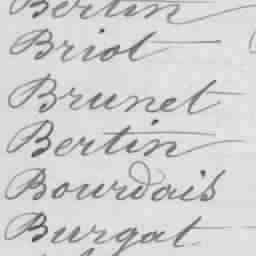 Bertin
Briot
Brunet
Bertin
Bourdais
Burgat